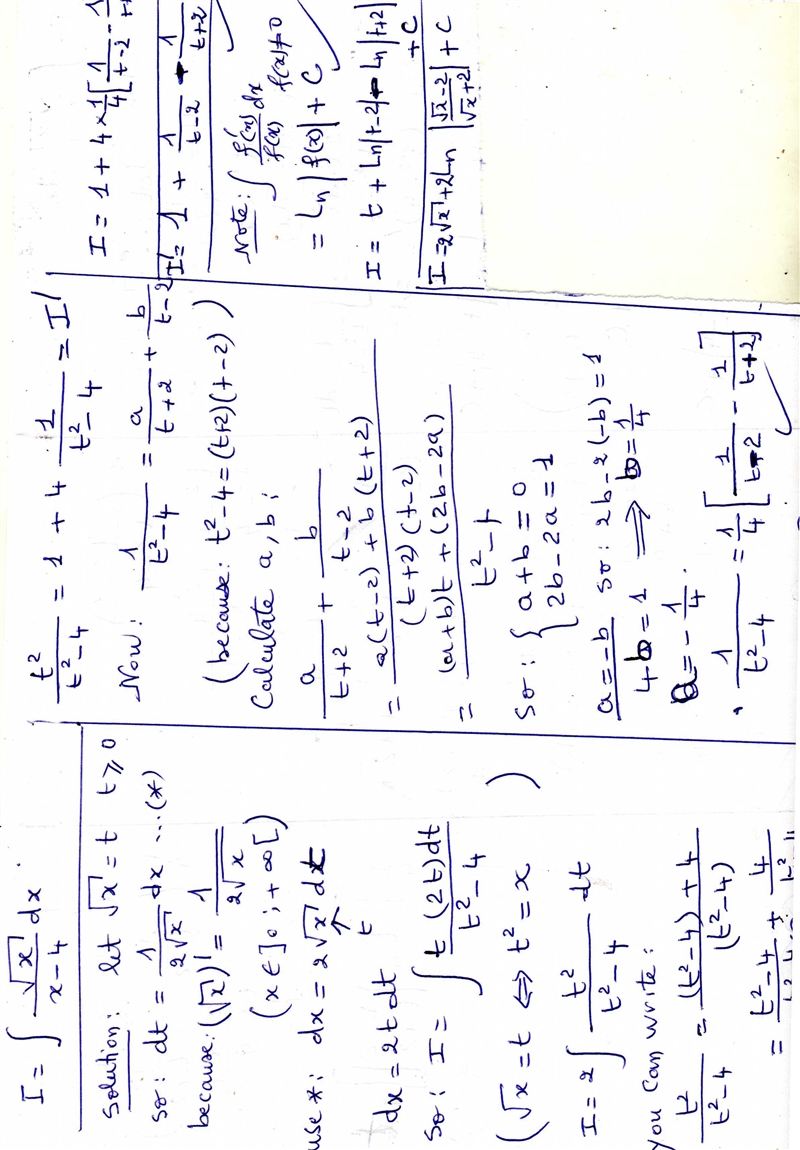 I = ∫ √x / (x-4) dx
Solution: let √x = t t ≥ 0
so: dt = 1/(2√x) dx ...(*)
because: (√x)' = 1/(2√x)
(x ∈ ]0; +∞[)
use *: dx = 2√x dt
t
dx = 2t dt
So: I = ∫ t (2t)dt / (t²-4)
(√x = t ⇔ t² = x )
I = 2 ∫ t²/(t²-4) dt
you can write:
t²/(t²-4) = ((t²-4)+4)/(t²-4)
= (t²-4)/(t²-4) + 4/(t²-4)
t²/(t²-4) = 1 + 4 1/(t²-4) = I'
Now: 1/(t²-4) = a/(t+2) + b/(t-2)
(because: t²-4 = (t+2)(t-2) )
Calculate a, b:
a/(t+2) + b/(t-2)
= (a(t-2) + b(t+2))/((t+2)(t-2))
= ((a+b)t + (2b-2a))/(t²-4)
So: { a+b = 0
2b-2a = 1
a=-b so: 2b-2(-b)=1
4b=1 ⟹ b=1/4
a=-1/4.
. 1/(t²-4) = 1/4 [ 1/(t-2) - 1/(t+2) ]
I = 1 + 4×1/4 [ 1/(t-2) -
I' = 1 + 1/(t-2) - 1/(t+2)
Note: ∫ f'(x)/f(x) dx f(x)≠0
= Ln|f(x)| + C
I = t + Ln|t-2| - Ln|t+2|
+ C
I = 2√x + 2Ln |(√x-2)/(√x+2)| + C